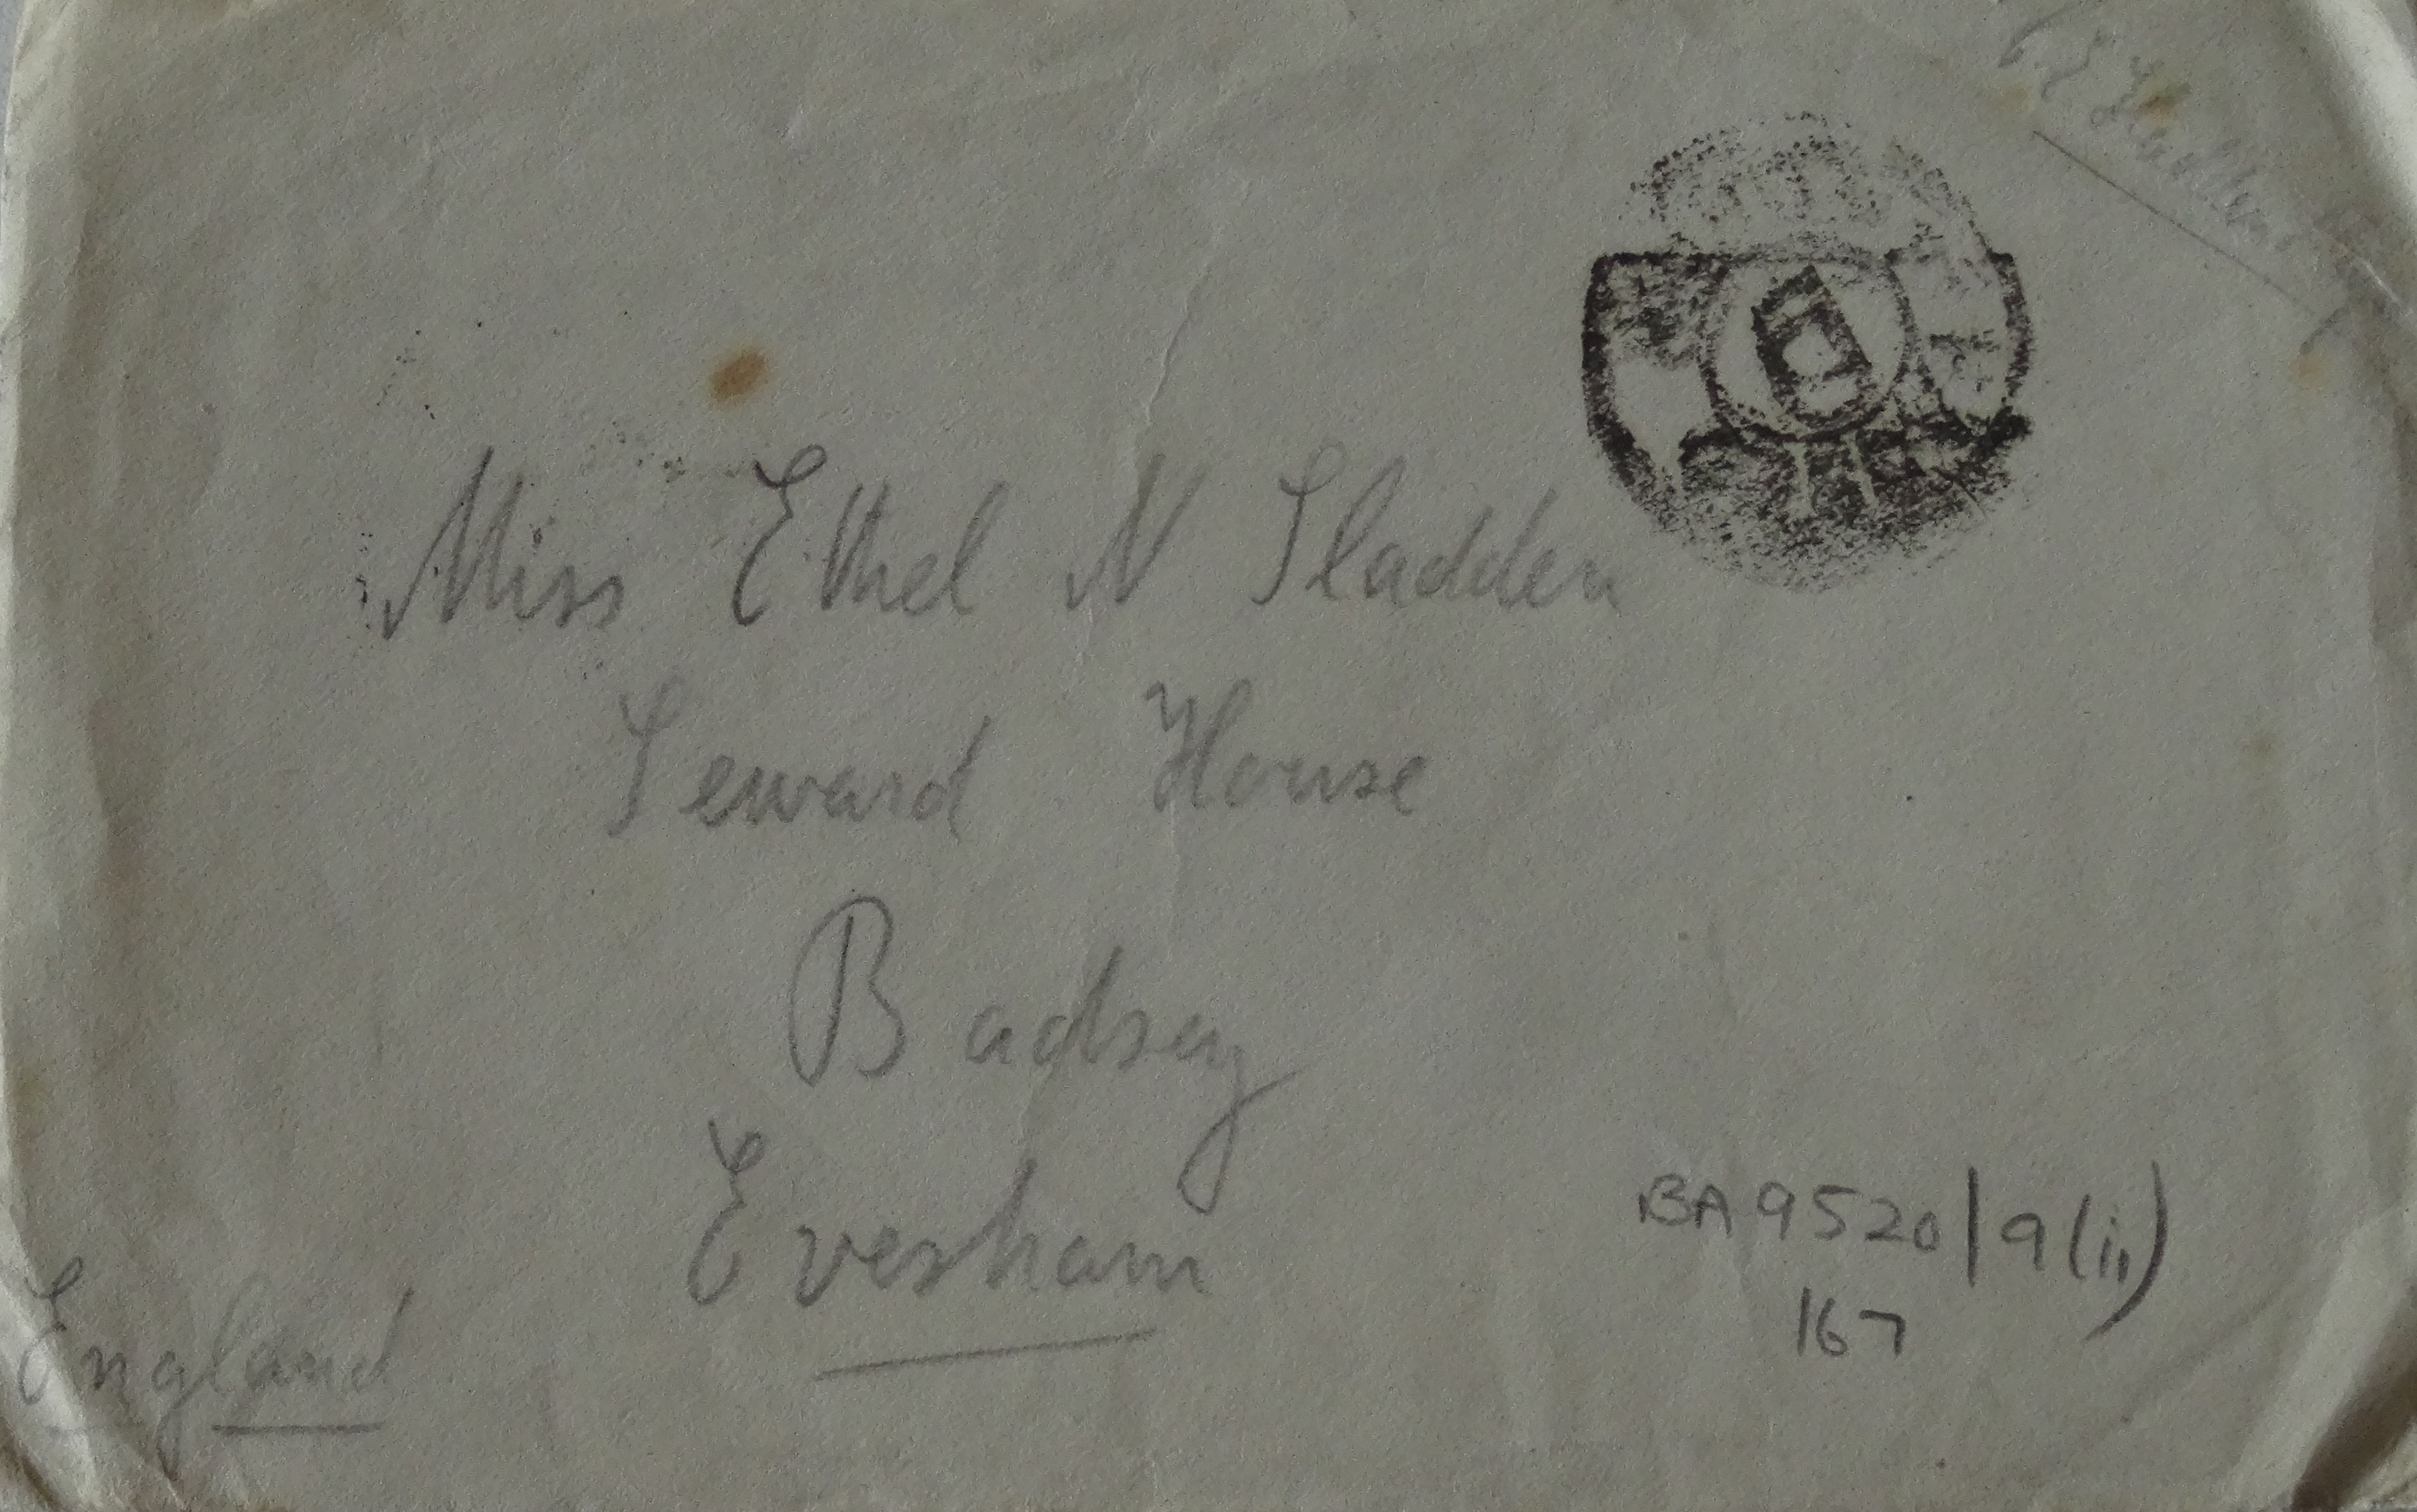 Miss Ethel N Sladden
Seward House
Badsey
Evesham
England
BA 9520/9(ii)
167